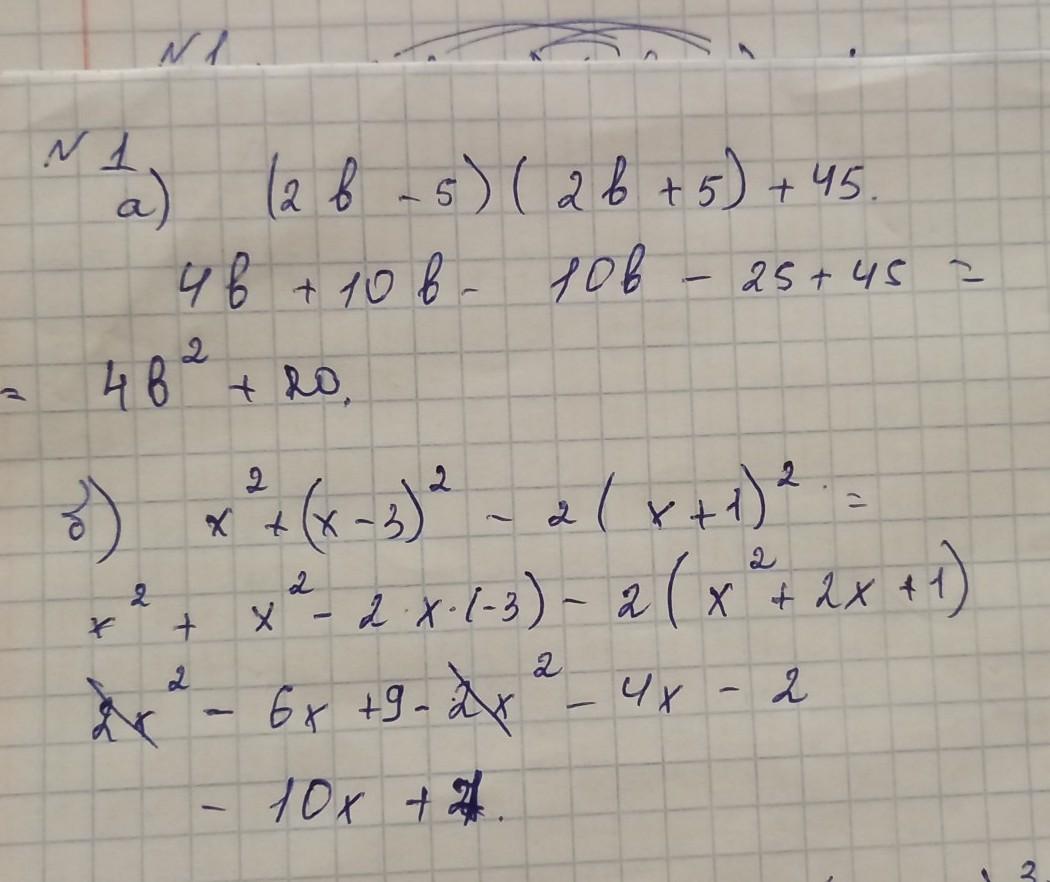 №1
№1
а) (2b - 5)(2b + 5) + 45.
4b + 10b - 10b - 25 + 45 =
= 4b² + 20.
б) x² + (x - 3)² - 2(x + 1)² =
x² + x² - 2·x·(-3) - 2(x² + 2x + 1)
2x² - 6x + 9 - 2x² - 4x - 2
- 10x + 7.